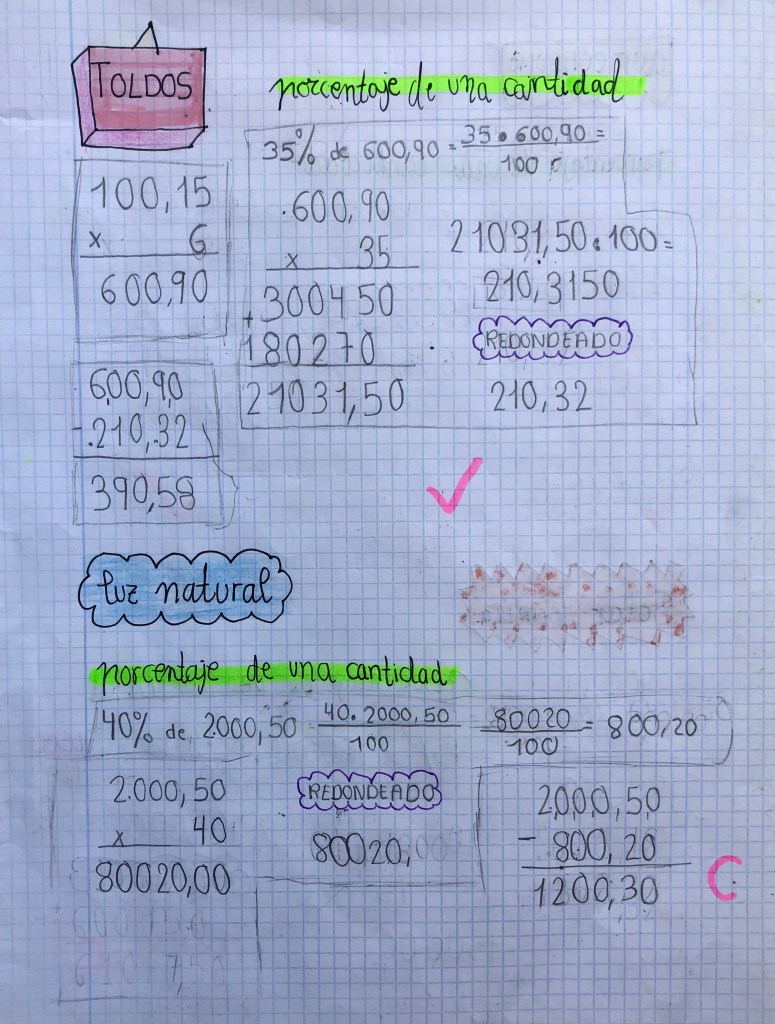 TOLDOS
porcentaje de una cantidad
100,15
x 6
600,90
35% de 600,90 = 35 • 600,90 =
100
.600,90
x 35
+300450
180270
21031,50
21031,50 : 100 =
210,3150
REDONDEADO
210,32
600,90
- .210,32
390,58
luz natural
porcentaje de una cantidad
40% de 2000,50 = 40. 2000,50
100
80020
100
= 800,20
2.000,50
x 40
80020,00
REDONDEADO
80020,
2000,50
- 800,20
1200,30
C